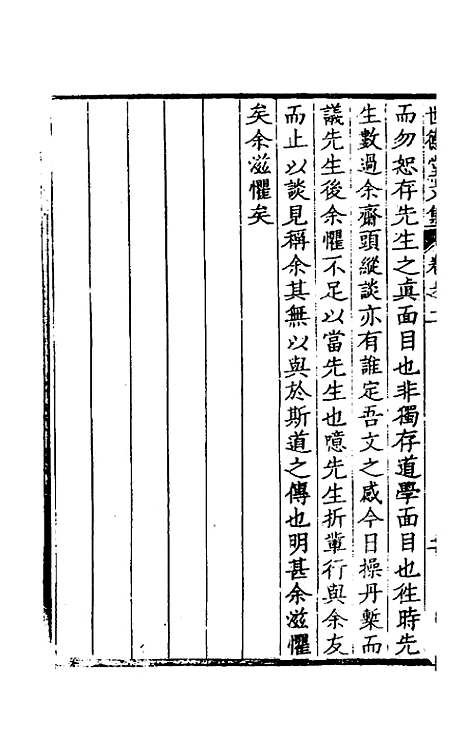 世德堂文集 卷之二
而勿恕存先生之眞面目也非獨存道學面目也徃時先
生數過余齋頭縱談亦有誰定吾文之感今日操丹槧而
議先生後余懼不足以當先生也噫先生折輩行與余友
而止以談見稱余其無以與於斯道之傳也明甚余滋懼
矣余滋懼矣